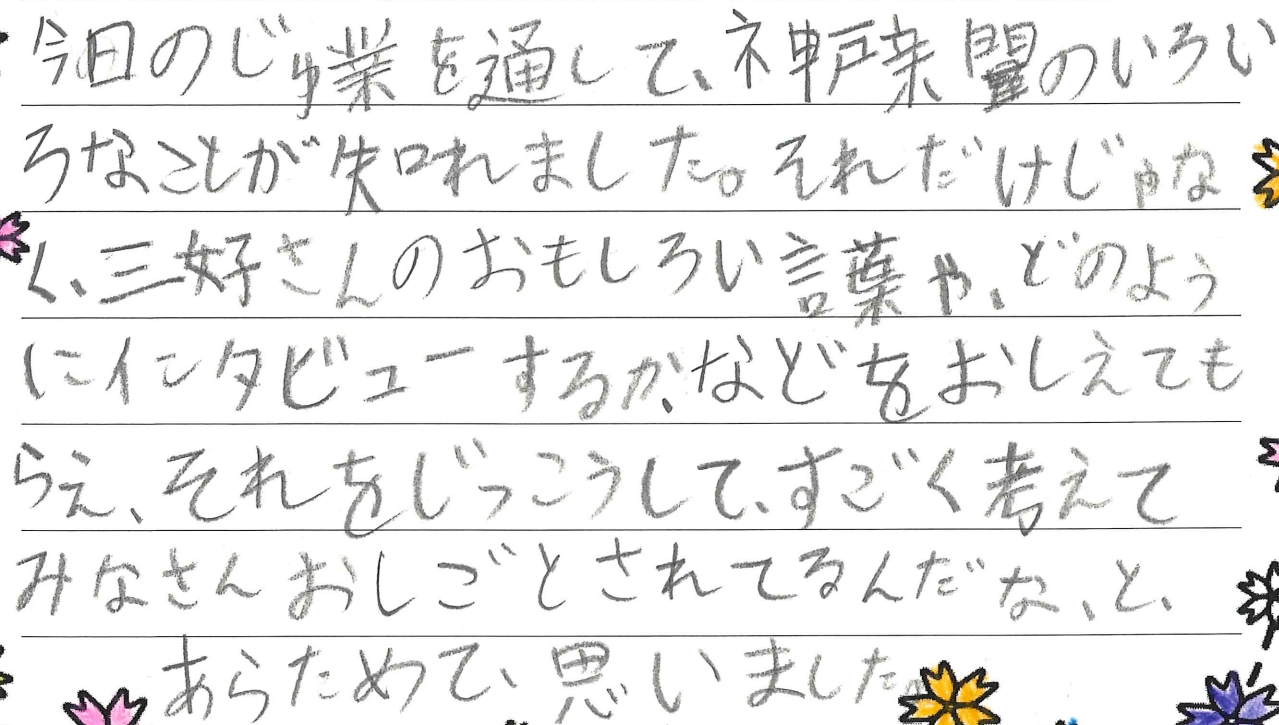 今日のじゅ業を通して、神戸新聞のいろい
ろなことが知れました。それだけじゃな
く、三好さんのおもしろい言葉や、どのよう
にインタビューするか、などをおしえても
らえ、それをじっこうして、すごく考えて
みなさんおしごとされてるんだな、と、
あらためて、思いました。